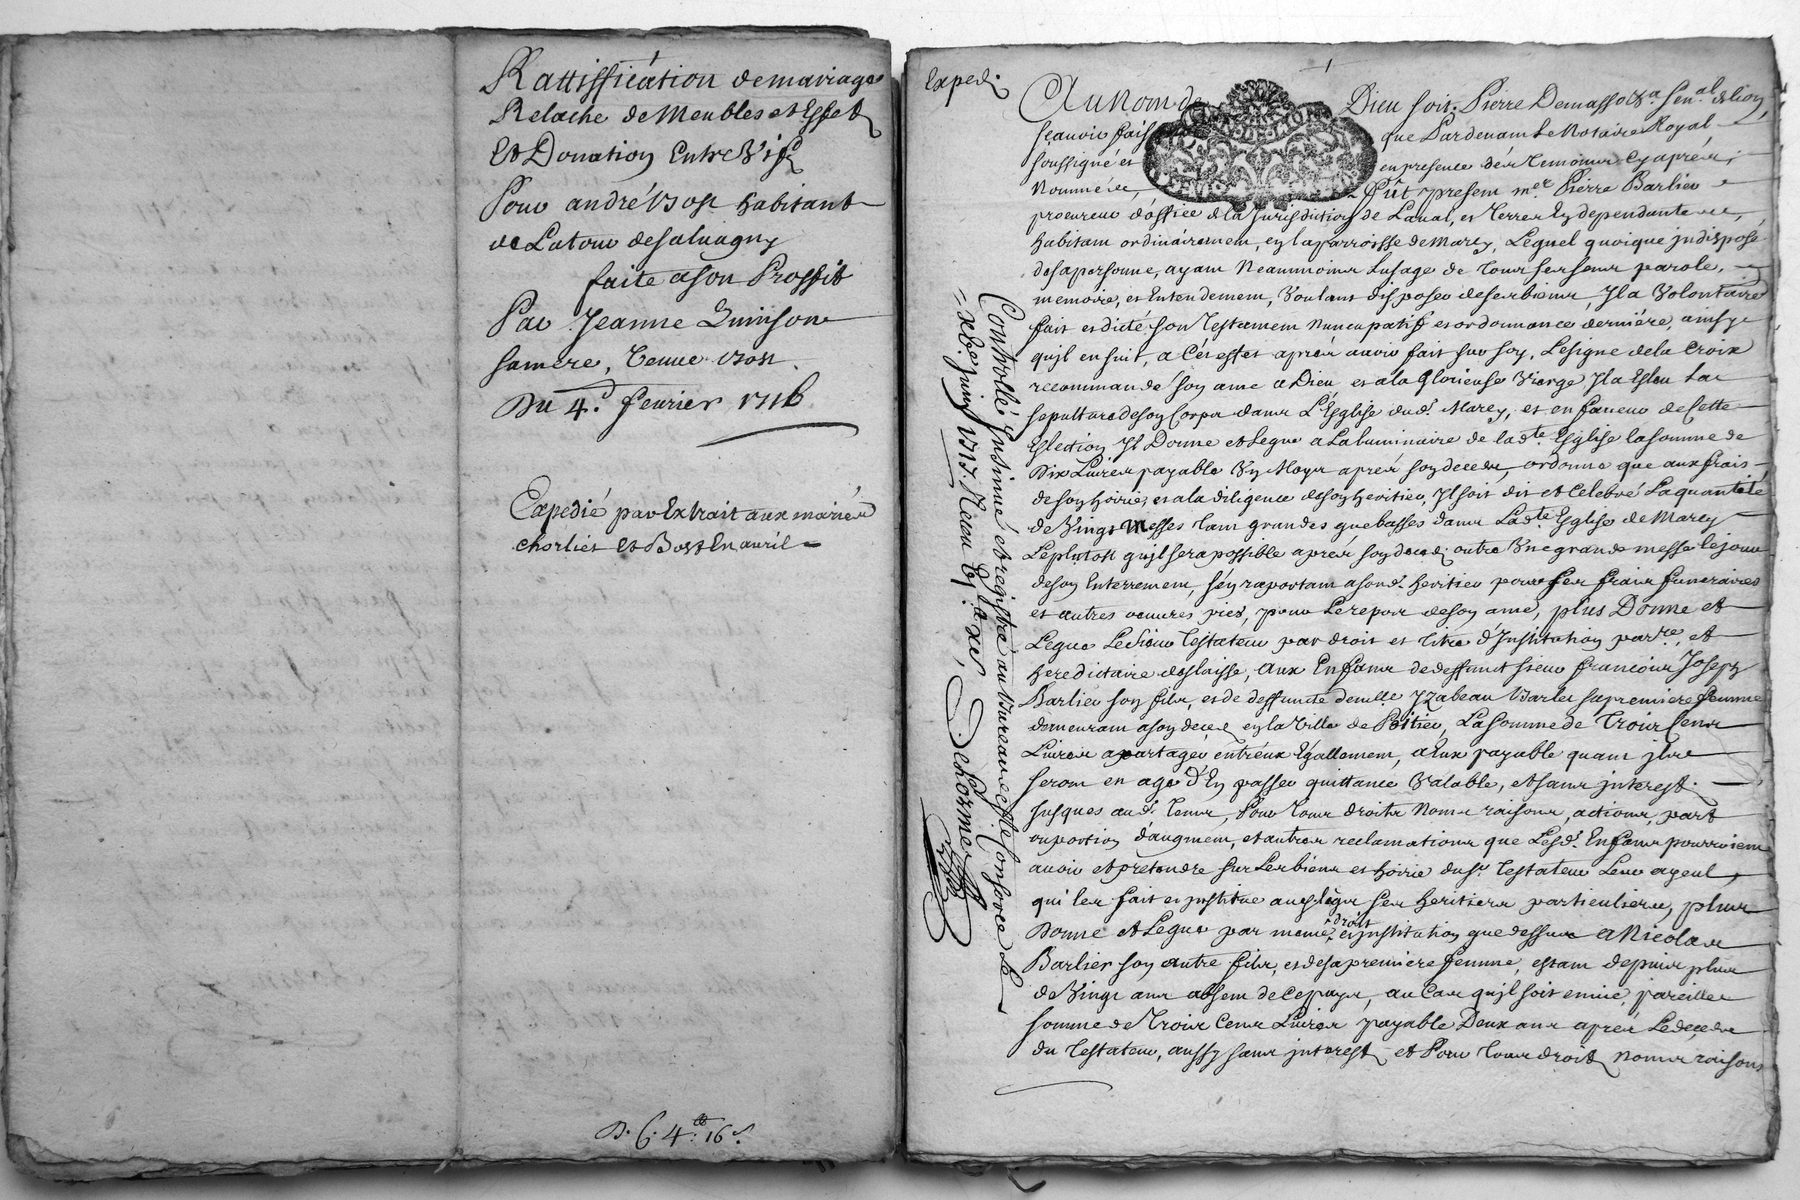 Rattiffication de mariage
Relache de Meubles et Effets
Et Donation Entre Vifs
Pour andré Bost habitant
de Latour desaluagny
faite a son Proffit
Par Jeanne Quinson
sa mere, veuue Bost
Du 4.e feurier 1716
Expedié par Extrait aux mariés
Chorliet Et Bost En auril
D. C. 4.tt 16.s
Exped.
Au Nom de Dieu soit. Pierre Demasso
sçauoir faisons que Pardeuant Le Notaire Royal
soussigné et en presence des temoins cy aprés
Nommés, fût present m.re Pierre Barlier
procureur d'office de La Jurisdiction de Laual, et terres en dependantes,
habitant ordinairement, en la parroisse de Marcy, Lequel quoique indisposé
de sa personne, ayant Neanmoins Lusage de tous ses sens parole,
memoire, et Entendement, Voulant disposer de ses biens, Il a Volontaire
fait et dicté son testament nuncupatif et ordonnance derniére, ainsy
qu'il en suit, a Cet effet aprés auoir fait sur soy, Le signe de la Croix
recommandé son ame a Dieu et a la Glorieuse Vierge, Il a Esleu sa
sepulture de son Corps dans L'Eglise dud. Marcy, et en faueur de Cette
Eslection Il Donne et Legue a La luminaire de lad.te Eglise la somme de
Dix Liures payable Un Moys aprés son decés, ordonne que aux frais
de son hoirie, et a la diligence de son heritier, Il soit dit et Celebré La quantité
de Vingt Messes tant grandes que basses dans Lad.te Eglise de Marcy
Le plutost qu'il sera possible aprés son decés; outre Une grande messe le jour
de son Enterrement, s'en raportant a sond. heritier pour ses frais funeraires
et autres oeuures pies, pour Le repos de son ame, plus Donne et
Legue Led. sieur testateur par droit et titre d'Institution par.re, et
hereditaire delaisse, aux Enfans de deffunt sieur francois Joseph
Barlier son fils, et de deffunte dem.lle Yzabeau Barlet sa premiere femme
demeurant a son decés en la Ville de Poitier, La somme de Trois Cens
Liures a partager entréux Egallement, a Eux payable quant ils
seront en age d'En passer quittance Valable, et sans interest
jusques aud. tems, Pour tous droits Noms raisons, actions, part
ou portion d'augment, et autres reclamations que Lesd. Enfans pourroient
auoir et pretendre sur Les biens et hoirie dud. testateur Leur ayeul,
qui les fait et institue ausd. légs ses heritiers particuliers, plus
Donne et Legue par meme droit et institution que dessus a Nicolas
Barlier son autre fils, et de sa premiere femme, estant depuis plus
de Vingt ans absent de Ce pays, au Cas qu'il soit en vie, pareille
somme de Trois Cens Liures payable Deux ans aprés Le decés
du testateur, aussy sans interest et Pour tous droits noms raisons
Controllé insinué et registré au Bureau